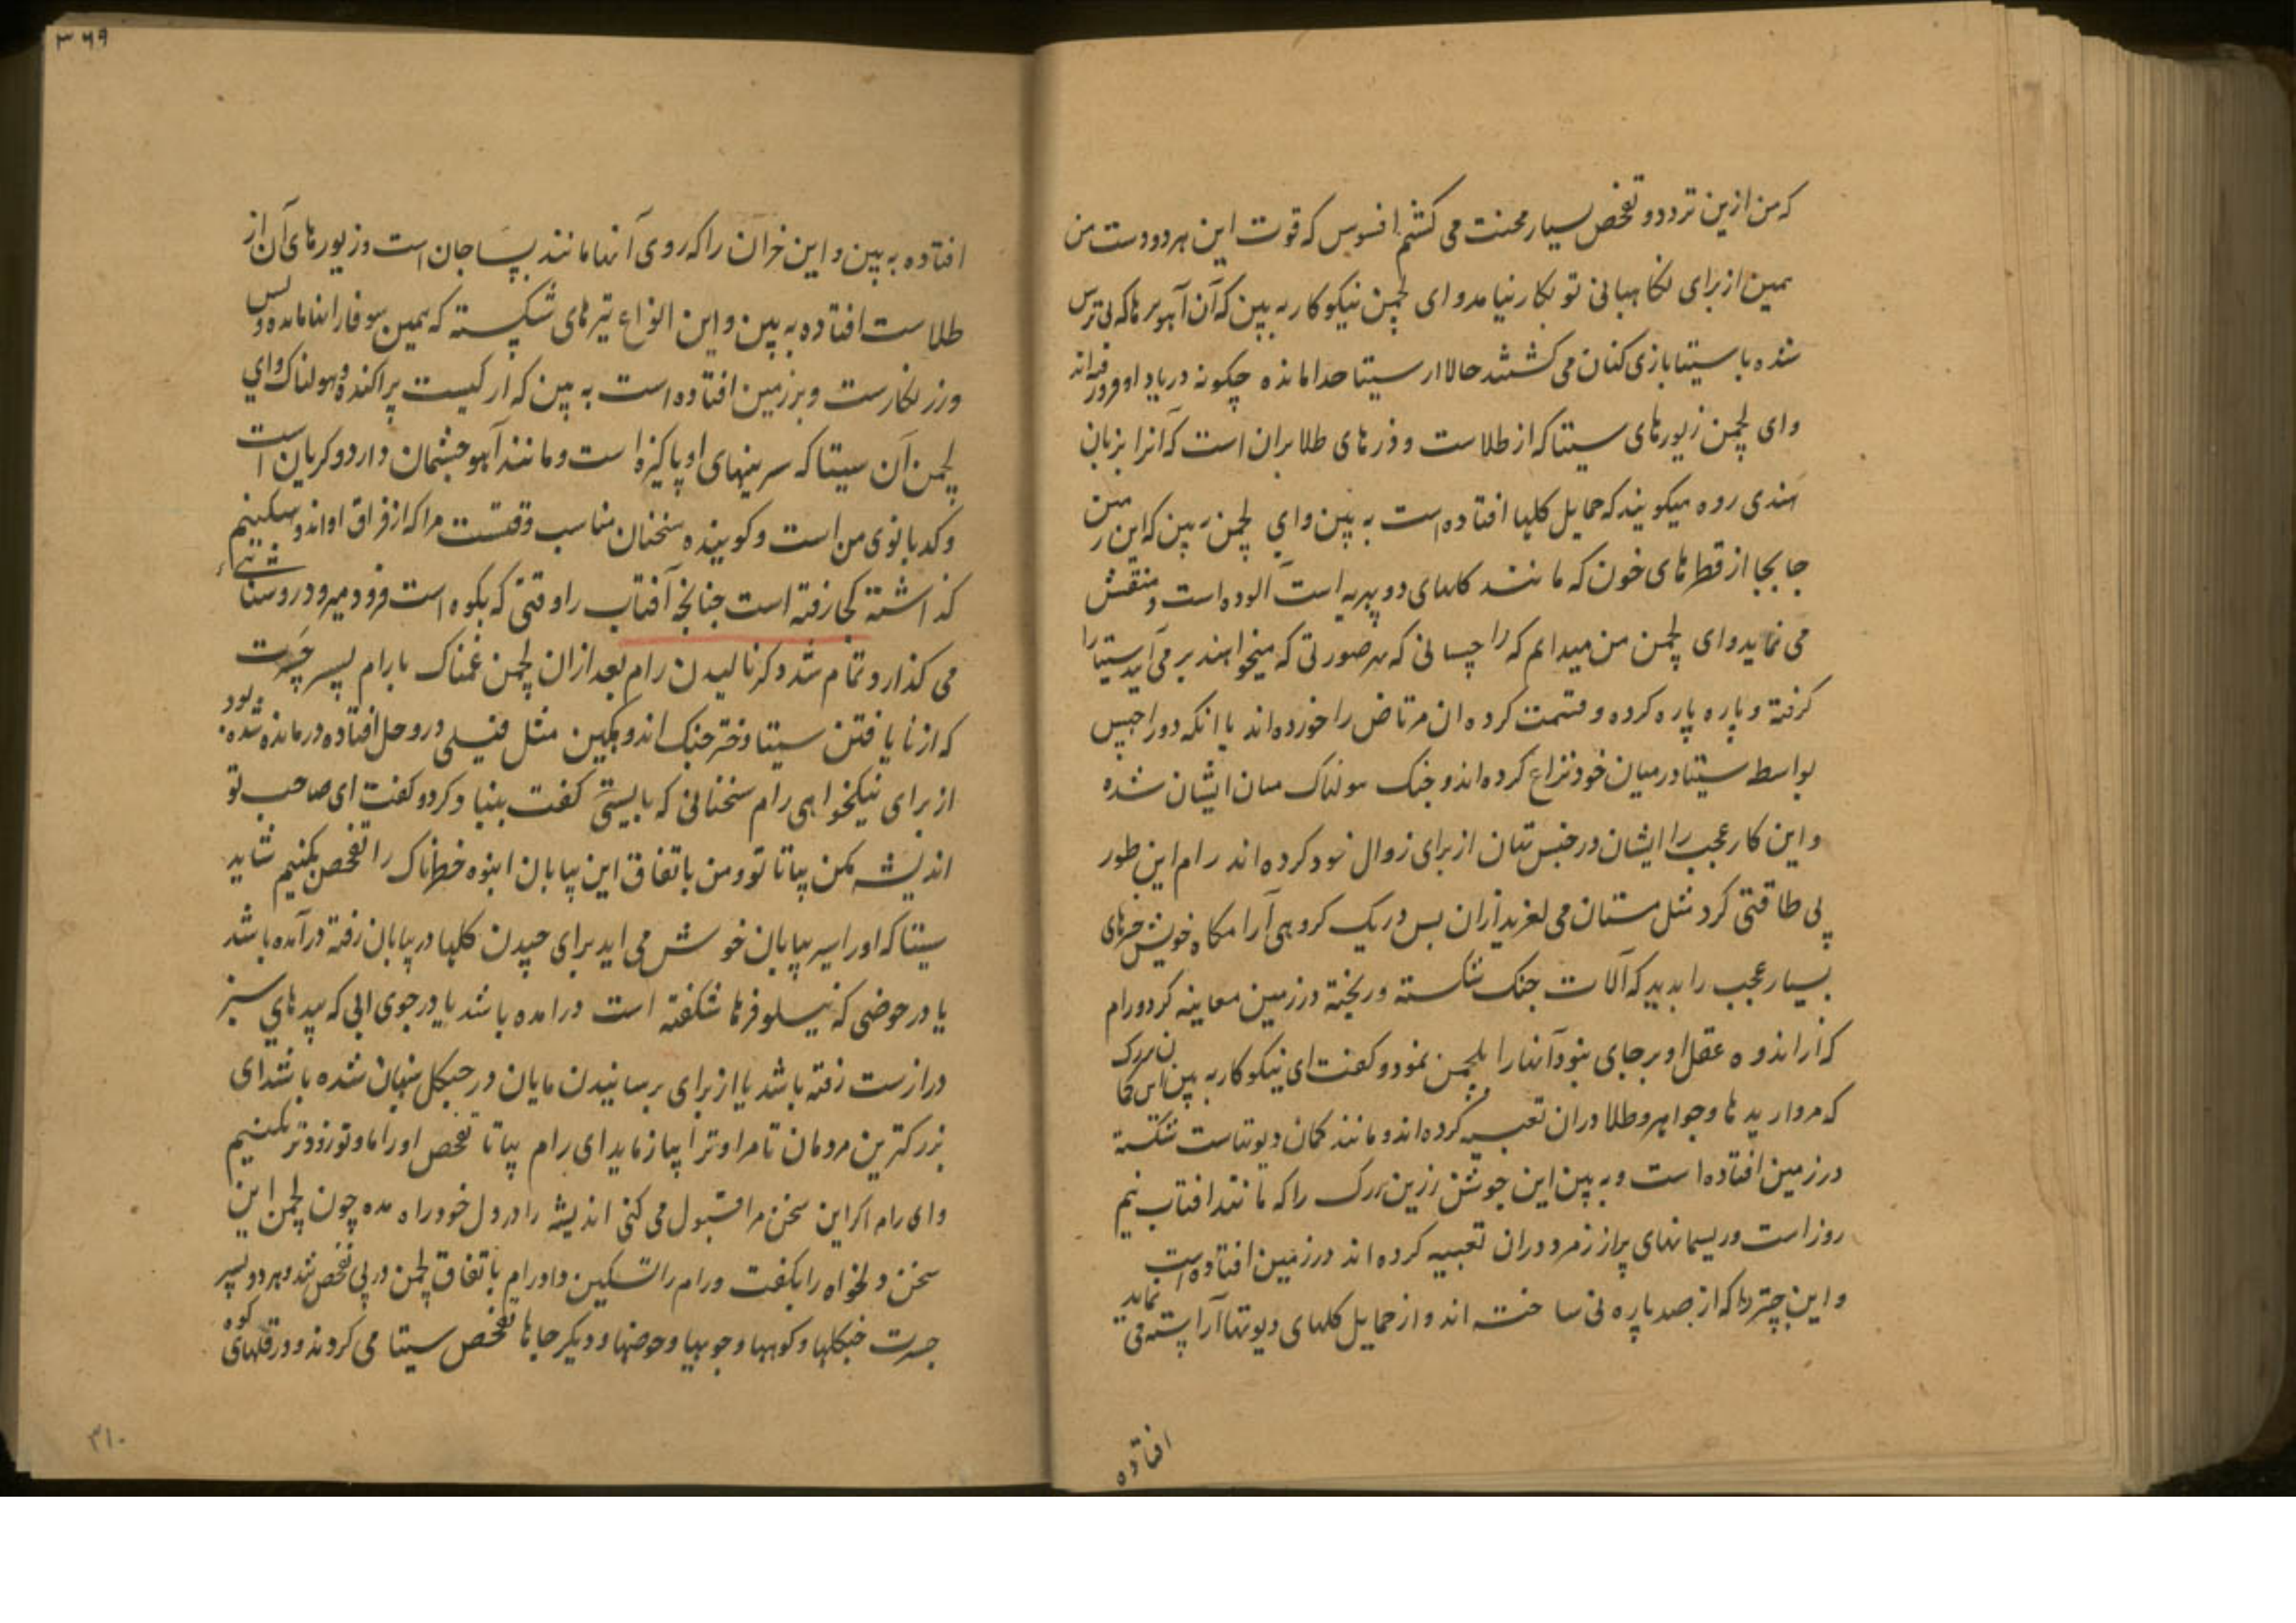 که من ازین تردد و تفحص بسیار محنت می کشم افسوس که قوت این هر دو دست من
همین از برای نکاهبانی تو بکار نیامد و ای لچمن نیکوکار به بین که آن آهو بر ها که بی ترس
شده با سیتا بازی کنان می کشتند حالا از سیتا جدا مانده چکونه در یاد او فرو رفته اند
و ای لچمن زیورهای سیتا که از طلاست و ذرهای طلا بران است که آنرا بزبان
هندی روه میکویند که حمایل کلها افتاده است به بین و ای لچمن به بین که این زمین
جا بجا از قطرهای خون که مانند کلهای دوپهریه است آلوده است و منقش
می نماید و ای لچمن من میدانم که راچسانی که بهر صورتی که میخواهند بر می آیند سیتا را
کرفته و پاره پاره کرده و قسمت کرده ان مرتاض را خورده اند یا انکه دو راچس
بواسطه سیتا در میان خود نزاع کرده اند و جنک هولناک میان ایشان شده
و این کار عجب را ایشان در جنس تنان از برای زوال خود کرده اند رام این طور
بی طاقتی کرد مثل مستان می لغزید ازان پس در یک کروهی آرامکاه خویش چیزهای
بسیار عجب را بدید که آلات جنک شکسته و ریخته در زمین معاینه کرد و رام
که از اندوه عقل او بر جای نبود آنها را بلچمن نمود و کفت ای نیکوکار به بین این کمان بزرک
که مرواریدها و جواهر و طلا دران تعبیه کرده اند و مانند کمان دیوتهاست شکسته
در زمین افتاده است و به بین این جوشن زرین بزرک را که مانند افتاب نیم
روز است و ریسمانهای پر از زمرد دران تعبیه کرده اند در زمین افتاده است
و این چتر را که از صد پاره نی ساخته اند و از حمایل کلهای دیوتها آراسته می نماید
افتاده
۳۶۹
افتاده به بین و این خران را که روی آنها مانند پساجان است و زیورهای آن از
طلاست افتاده به بین و این انواع تیرهای شکسته که همین سوفار انها مانده و بس
و زر نکارست و بر زمین افتاده است به بین که از کیست پراکنده و هولناک و ای
لچمن آن سیتا که سرینهای او پاکیزه است و مانند آهو چشمان دارد و کریان است
و کدبانوی من است و کوینده سخنان مناسب وقتست مرا که از فراق او اندوهکینم
کذاشته کجا رفته است چنانچه آفتاب را وقتی که بکوه است فرو میرود روشنائی
می کذارد و تمام شد ذکر نالیدن رام بعد ازان لچمن غمناک با رام پسر جسرت
که از نایافتن سیتا دختر جنک اندوهکین مثل فیلی در وحل افتاده درمانده شده بود
از برای نیکخواهی رام سخنانی که بایستی کفت بنیاد کرد و کفت ای صاحب تو
اندیشه مکن بیا تا تو و من باتفاق این بیابان انبوه خطرناک را تفحص بکنیم شاید
سیتا که او را سیر بیابان خوش می اید برای چیدن کلها در بیابان رفته درآمده باشد
یا در حوضی که نیلوفرها شکفته است درامده باشد یا در جوی ابی که بیدهای سبز
درازست رفته باشد یا از برای ترسانیدن مایان در جنکل پنهان شده باشد ای
بزرکترین مردمان تا مرا و ترا بیازماید ای رام بیا تا تفحص او را ما و تو زودتر بکنیم
و ای رام اکر این سخن مرا قبول می کنی اندیشه را در دل خود راه مده چون لچمن این
سخن دلخواه را بکفت و رام را تسکین داد رام باتفاق لچمن در پی تفحص شد و هر دو پسر
جسرت جنکلها و کوهها و جویها و حوضها و دیکر جاها تفحص سیتا می کردند و در قلهای کوه
۳۱۰